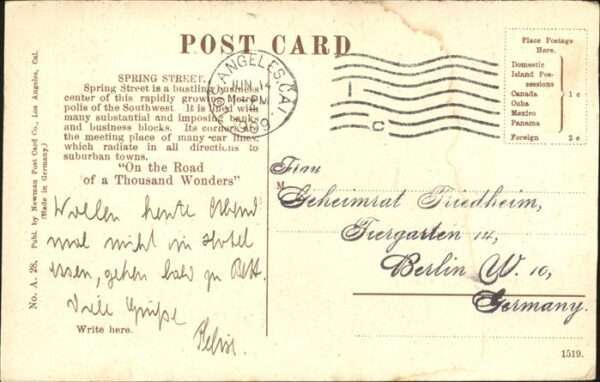 POST CARD
SPRING STREET.
Spring Street is a bustling business
center of this rapidly growing Metro-
polis of the Southwest. It is lined with
many substantial and imposing banks
and business blocks. Its corners are
the meeting place of many car lines,
which radiate in all directions to
suburban towns.
"On the Road
of a Thousand Wonders"
Wollen heute Abend
mal nicht im Hotel
essen, gehen bald zu Bett.
Viele Grüße
Write here.
No. A. 28. Publ. by Newman Post Card Co., Los Angeles, Cal.
(Made in Germany.)
LOS ANGELES, CAL.
JUN 14
PM
1909
Place Postage
Here.
Domestic
Island Pos-
sessions
Canada
Cuba
Mexico
Panama
1c
Foreign 2c
Frau
M
Geheimrat Friedheim,
Tiergarten 14,
Berlin W. 10,
Germany.
1519.